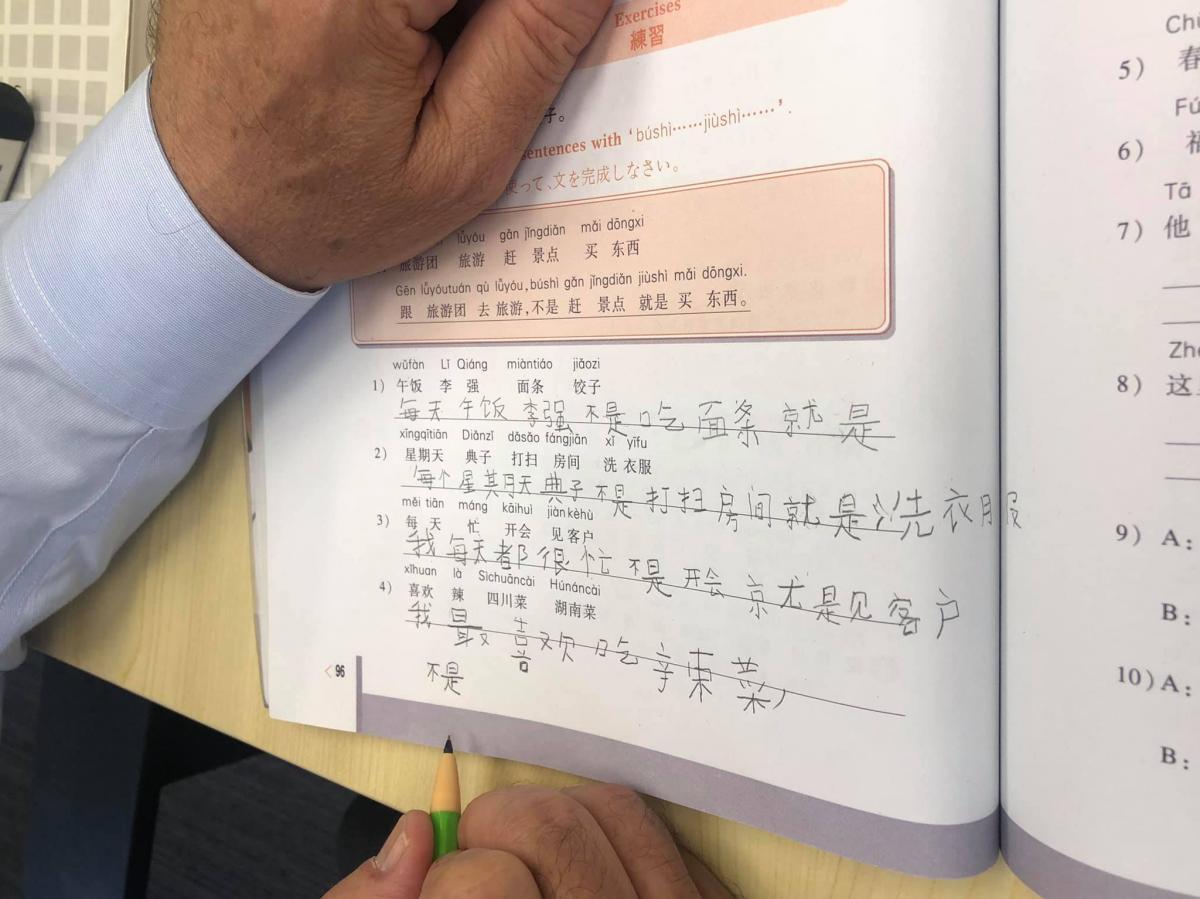 Exercises
練習
子。
sentences with ‘búshì……jiùshì……’.
使って、文を完成しなさい。
lǚyóu gǎn jǐngdiǎn mǎi dōngxi
旅游团 旅游 赶 景点 买 东西
Gēn lǚyóutuán qù lǚyóu, búshì gǎn jǐngdiǎn jiùshì mǎi dōngxi.
跟 旅游团 去 旅游, 不是 赶 景点 就是 买 东西。
wǔfàn Lǐ Qiáng miàntiáo jiǎozi
1) 午饭 李 强 面条 饺子
每天午饭李强不是吃面条就是
xīngqītiān Diǎnzǐ dǎsǎo fángjiān xǐ yīfu
2) 星期天 典子 打扫 房间 洗 衣服
每个星期天典子不是打扫房间就是洗衣服
měi tiān máng kāihuì jiàn kèhù
3) 每 天 忙 开会 见 客户
我每天都很忙不是开会就是见客户
xǐhuan là Sìchuāncài Húnáncài
4) 喜欢 辣 四川菜 湖南菜
我最喜欢吃辛束菜,
不是
<96
Chū
5) 春
Fú
6) 福
Tā
7) 他
Zhè
8) 这
9) A:
B:
10) A:
B: